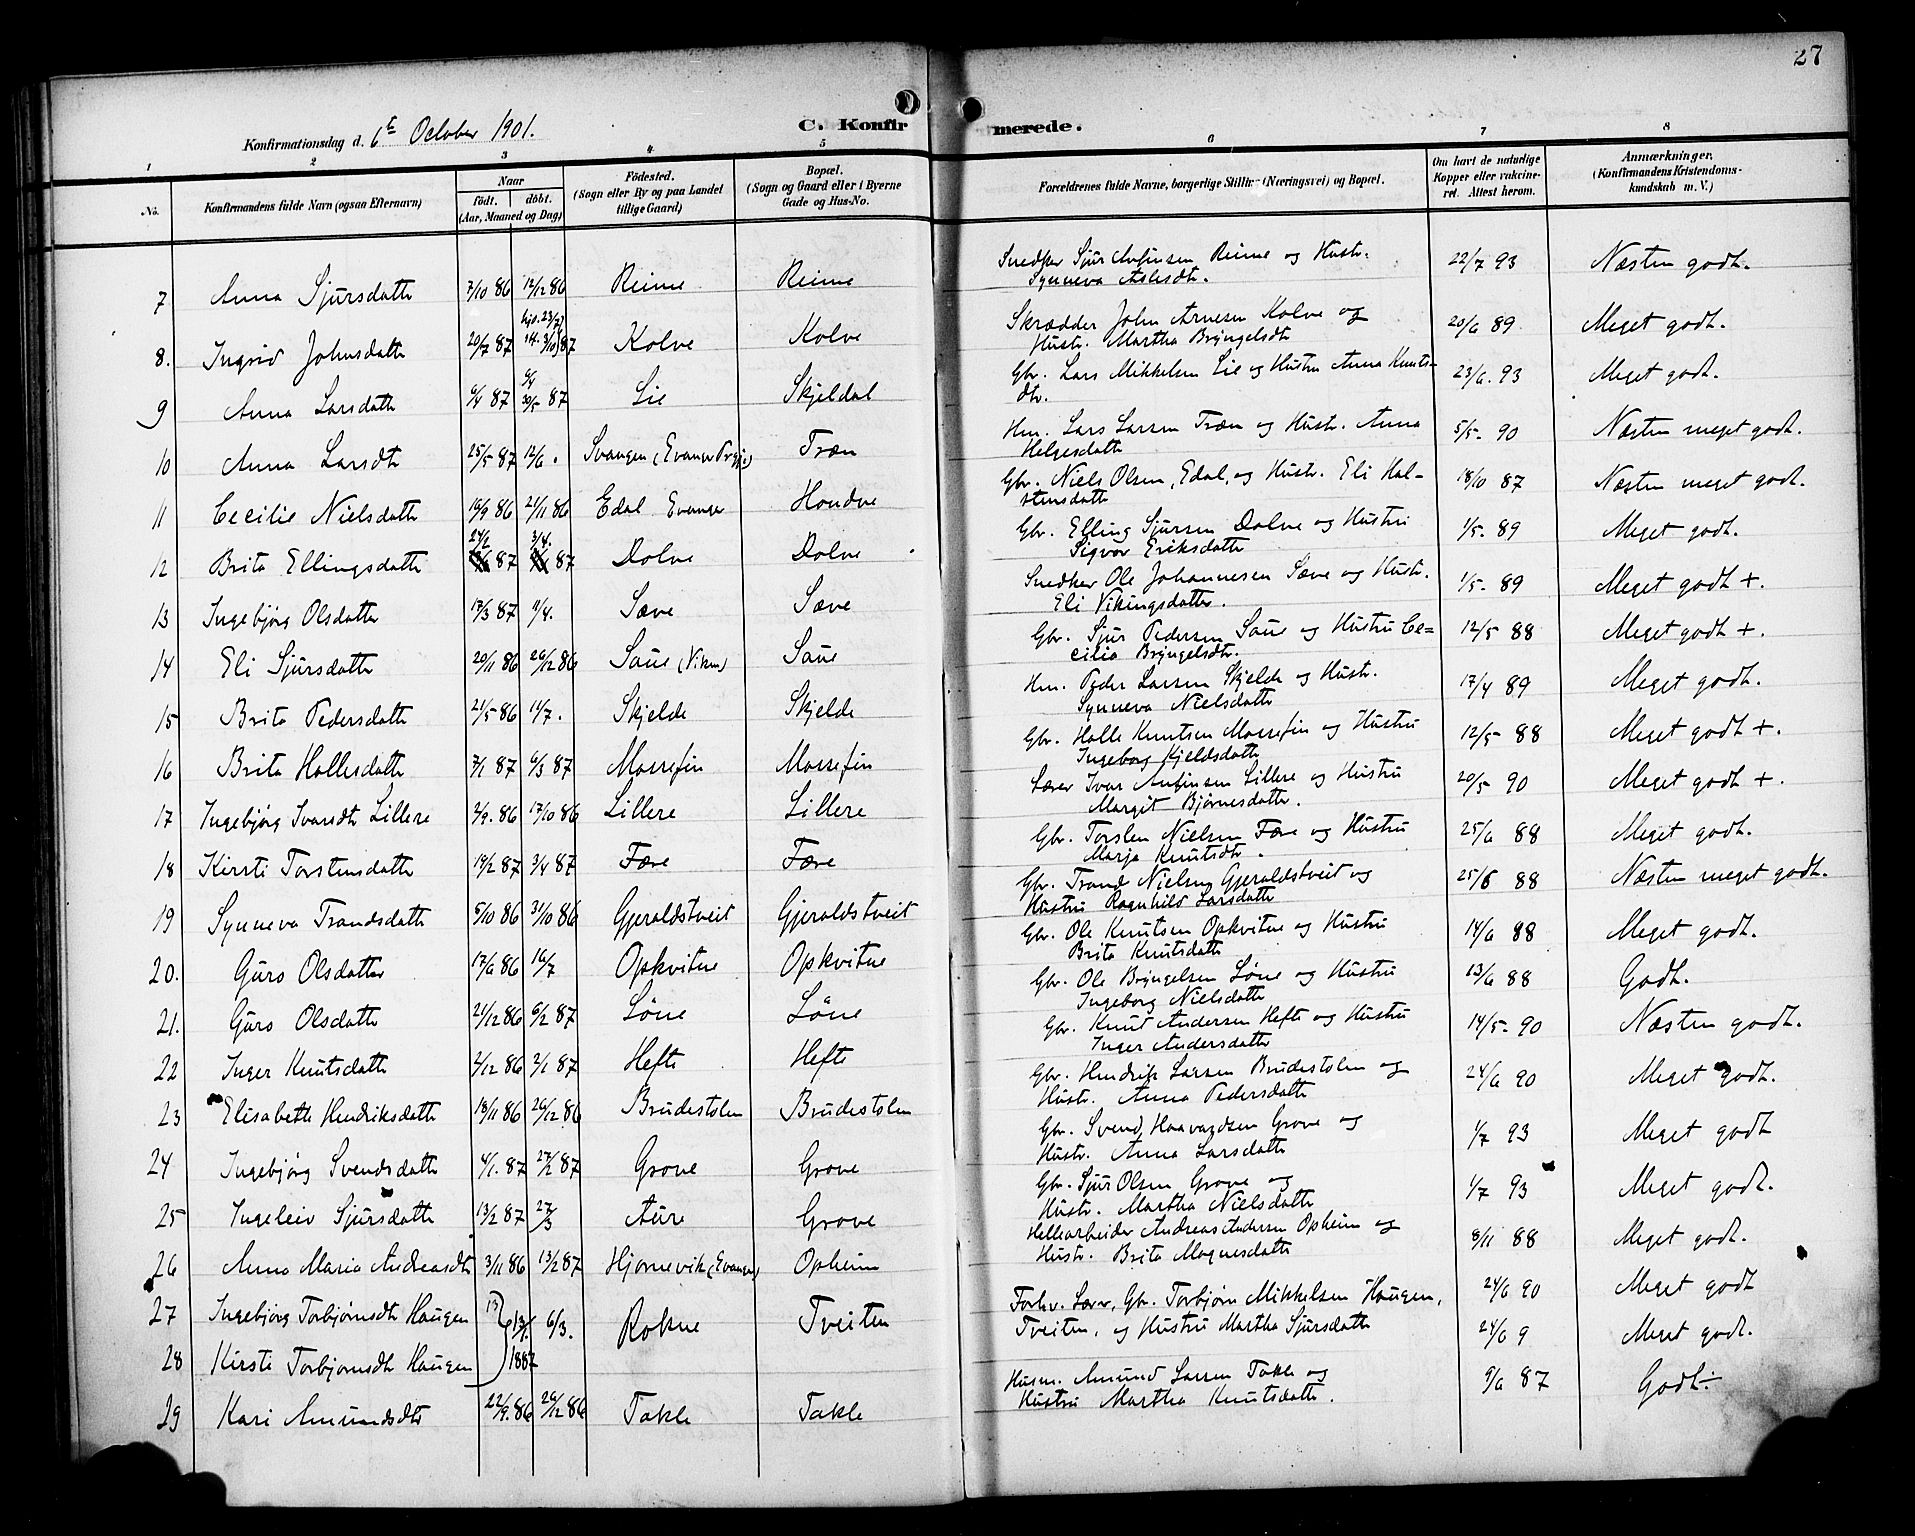 27
Konfirmationsdag d. 6te October 1901.
C. Konfirmerede.
1 2 3 4 5 6 7 8
No.
Konfirmandens fulde Navn (ogsaa Efternavn)
Naar
født. døbt.
(Aar, Maaned og Dag)
Fødested.
(Sogn eller By og paa Landet
tillige Gaard)
Bopæl.
(Sogn og Gaard eller i Byerne
Gade og Hus-No.
Forældrenes fulde Navne, borgerlige Stilling (Næringsvei) og Bopæl.
Om havt de naturlige
Kopper eller vakcine-
ret. Attest herom.
Anmærkninger.
(Konfirmandens Kristendoms-
kundskab m. V.)
7 Anna Sjursdatter 7/10 86 12/12 86 Reime Reime Snedker Sjur Anfinsen Reime og Hustr. Synneva Aslesdtr. 22/7 93 Næsten godt.
8. Ingrid Johnsdatter 20/7 87 hjd. 23/7 3/10 87 Kolve Kolve Skrædder John Arnesen Kolve og Hustr. Martha Bryngelsdtr 20/6 89. Meget godt.
9 Anna Larsdatter 6/4 87 30/5 87 Lie Skjeldal Gbr. Lars Mikkelsen Lie og Hustru Anna Knuts-dtr. 23/6. 93 Meget godt.
10 Anna Larsdtr 25/5 87 12/6. Svangen (Evanger Prgj.) Træn Hm. Lars Larsen Træn og Hustr. Anna Helgesdatter 5/5- 90 Næsten meget godt.
11 Cecilie Nielsdatter 19/9 86 21/11 86 Edal Evanger Hondve Gbr. Niels Olsen, Edal, og Hustr. Eli Hal-stensdatter 18/10 87 Næsten meget godt.
12 Brita Ellingsdatter 24/2 87 3/4. 87 Dolve Dolve Gbr. Elling Sjursen Dolve og Hustru Sigvor Eriksdatter 1/5- 89 Meget godt.
13 Ingebjørg Olsdatter 17/3 87 11/4. Sæve Sæve Snedker Ole Johannesen Sæve og Hustr. Eli Vikingsdatter. 1/5- 89 Meget godt +.
14 Eli Sjursdatter 20/11 86 26/12 86 Saue (Viken) Saue Gbr. Sjur Pedersen Saue og Hustru Ce=cilia Bryngelsdtr. 12/5 88 Meget godt +.
15 Brita Pedersdatter 21/5 86 11/7. Skjelde Skjelde Hm. Peder Larsen Skjelde og Hustr. Synneva Nielsdatter 17/4 89 Meget godt.
16 Brita Hallesdatter 7/1 87 6/3 87 Mossefin Mossefin Gbr. Halle Knutsen Mossefin og Hustru Ingeborg Kjeldsdatter 12/5 88 Meget godt +.
17 Ingebjørg Ivarsdtr Lillere 2/9. 86 17/10 86 Lillere Lillere Lærer Ivar Anfinsen Lillere og Hustru Margit Bjørnesdatter. 20/5 90 Meget godt +.
18 Kirsti Torstensdatter 19/2 87 3/4 87 Fære Fære Gbr. Torsten Nielsen Fære og Hustru Marja Knutsdtr. 25/6 88 Meget godt.
19 Synneva Trandsdatter 5/10 86 31/10 86 Gjeraldstveit Gjeraldstveit Gbr. Trand Nielsen Gjeraldstveit og Hustru Ragnhild Larsdatter 25/6 88 Næsten meget godt.
20. Guro Olsdatter 17/6 86 16/7 Opkvitne Opkvitne Gbr. Ole Knutsen Opkvitne og Hustru Brita Knutsdatter 14/6 88 Meget godt.
21. Guro Olsdatter 21/12 86 6/2 87 Løne Løne Gbr. Ole Bryngelsen Løne og Hustru Ingeborg Nielsdatter 13/6 88 Godt.
22 Inger Knutsdatter 2/12 86 2/1 87 Hefte Hefte Gbr. Knut Andersen Hefte og Hustru Inger Andersdatter 14/5- 90 Næsten godt.
23 Elisabeth Hendriksdatter 13/11 86 26/12 86 Brudestolen Brudestolen Gbr. Hendrik Larsen Brudestolen og Hustr. Anna Pedersdatter 24/6 90 Meget godt.
24 Ingebjørg Svendsdatter 4/1. 87 27/2 87 Grove Grove Gbr. Svend Haavardsen Grove og Hustr. Anna Larsdatter 1/7 93 Meget godt
25 Ingeleiv Sjursdatter 13/2 87 27/3 Aure Grove Gbr. Sjur Olsen Grove og Hustr. Martha Nielsdatter 1/7 93 Meget godt.
26 Anna Maria Andreasdtr 3/11 86 13/2 87 Hjørnevik (Evanger) Opheim Hellearbeider Andreas Andersen Opheim og Hustr. Brita Magnesdatter 8/11 88 Meget godt.
27 Ingebjørg Torbjørnsdtr Haugen 13/1. 1887 6/3. Rokne Tveiten Forhv. Lærer, Gbr. Torbjørn Mikkelsen Haugen, Tveiten, og Hustru Martha Sjursdatter 24/6 90 Meget godt
28 Kirsti Torbjørnsdtr Haugen 24/6 9 Meget godt.
29 Kari Amundsdtr 22/9. 86 26/12 86 Takle Takle Husm. Amund Larsen Takle og Hustru Martha Knutsdatter. 9/6 87 Godt÷